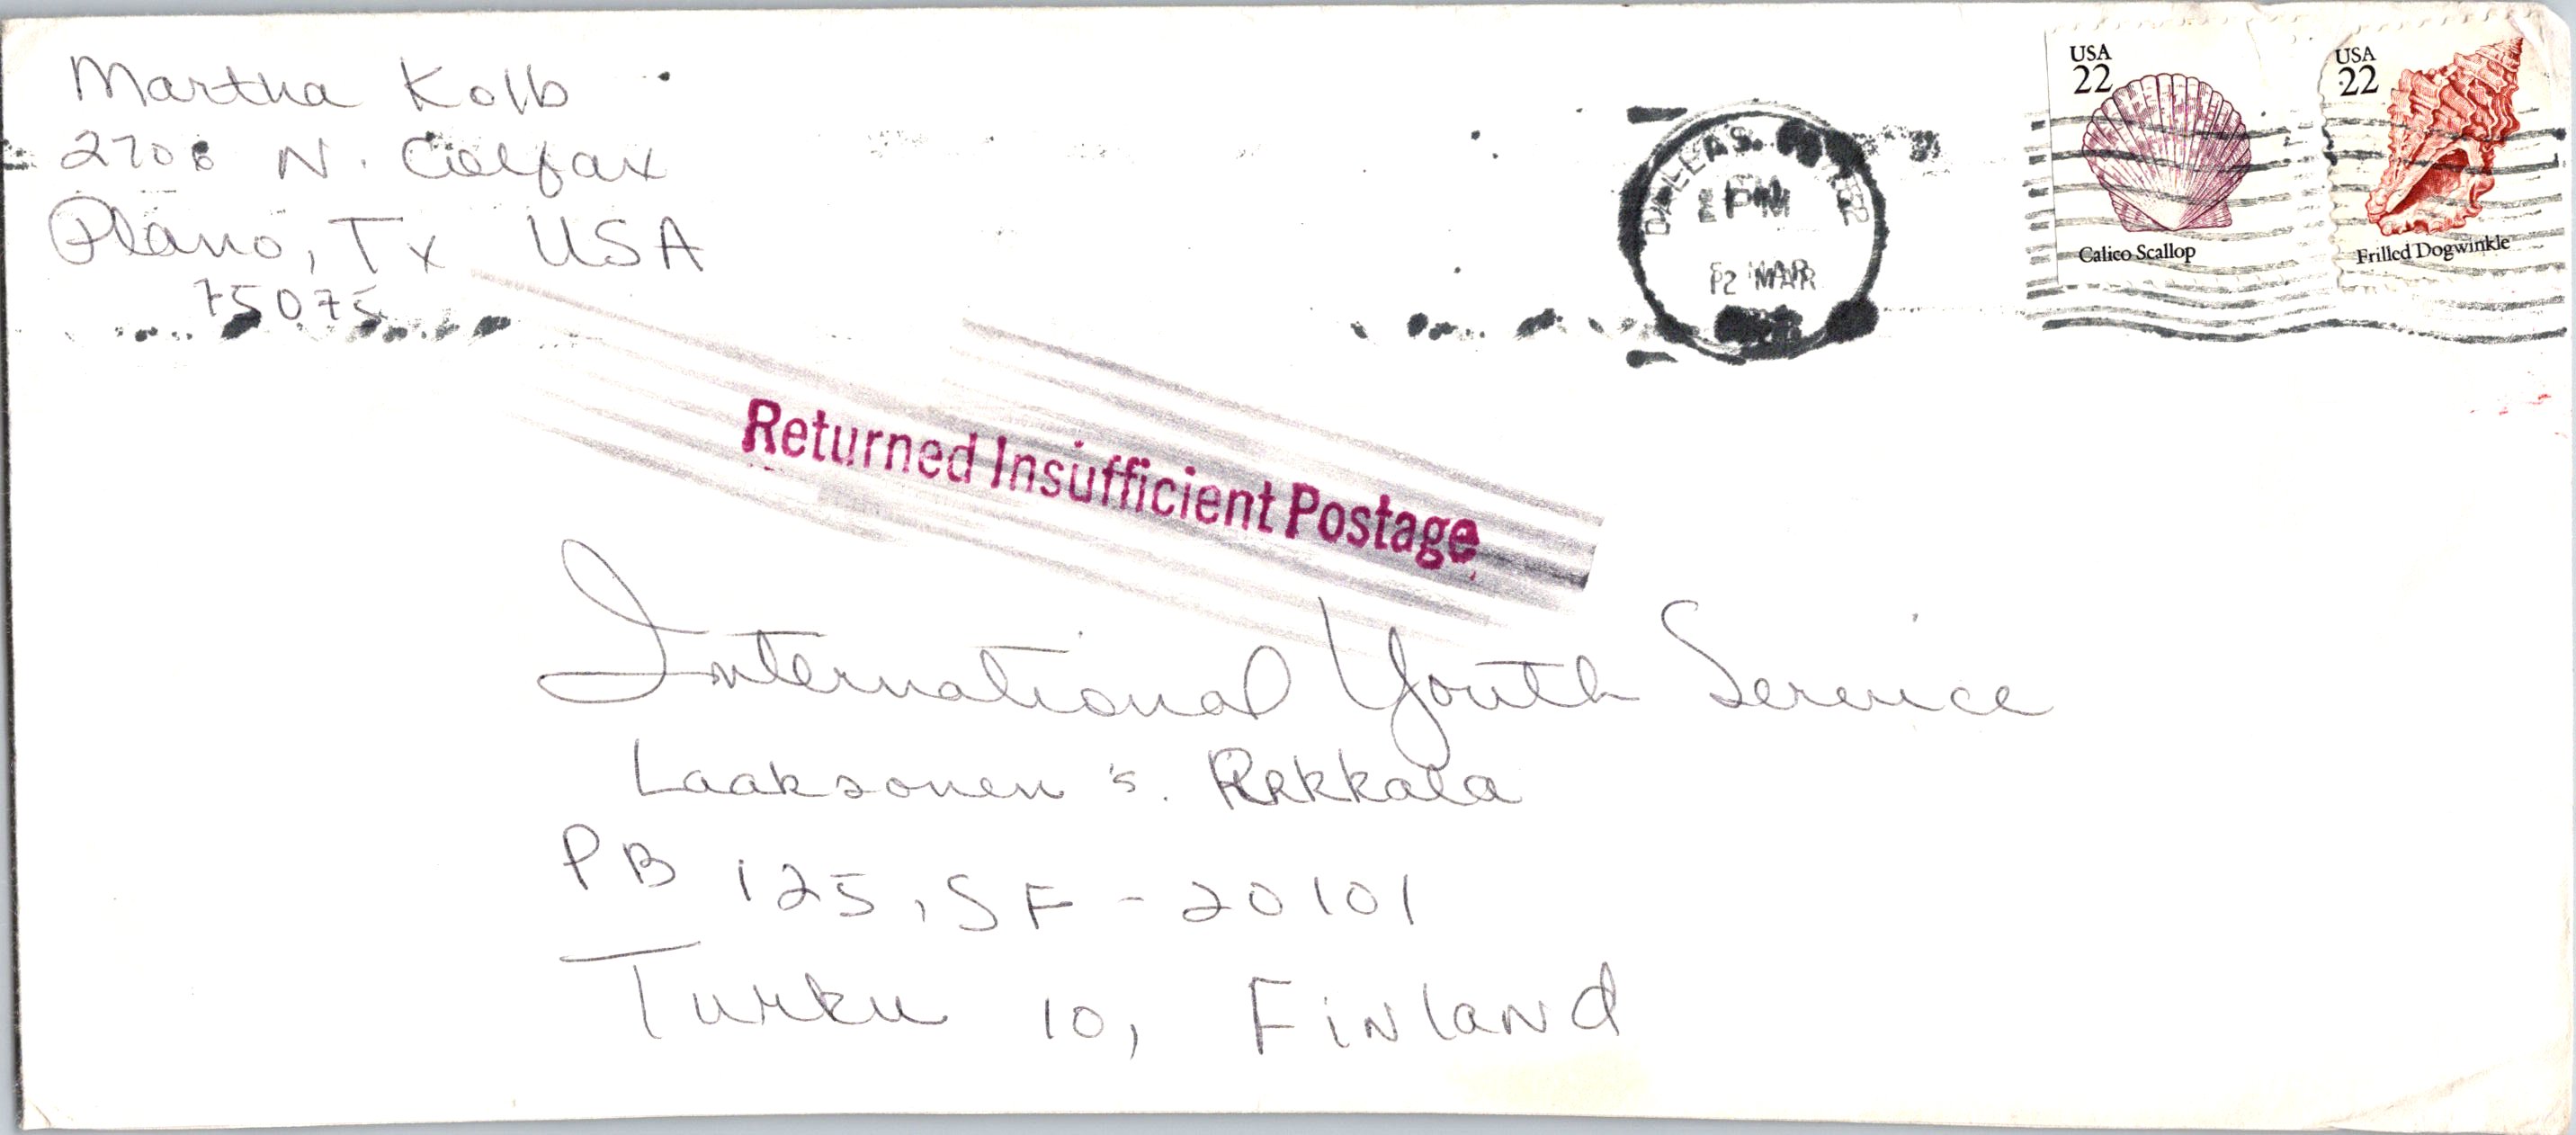 Martha Kolb
2708 N. Colfax
Plano, Tx USA
75075
DALLAS.
PM
12 MAR
USA
22
Calico Scallop
USA
22
Frilled Dogwinkle
Returned Insufficient Postage
International Youth Service
Laaksonen 's. Rekkala
PB 125, SF-20101
Turku 10, Finland